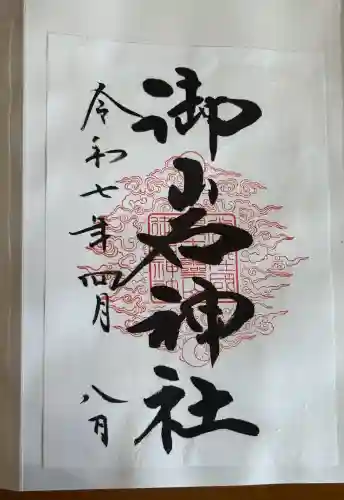 御岩神社
令和七年四月
八日